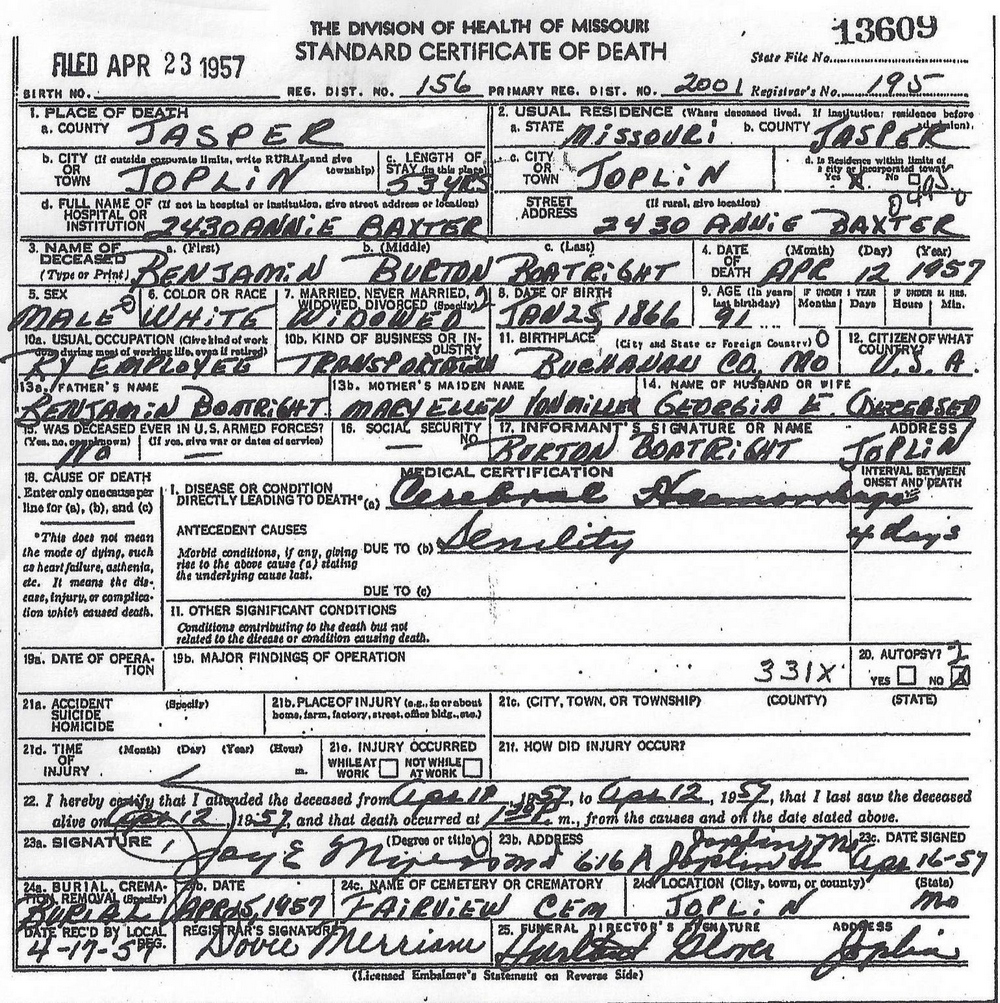 THE DIVISION OF HEALTH OF MISSOURI
STANDARD CERTIFICATE OF DEATH
13609
State File No.
FILED APR 23 1957
BIRTH NO. REG. DIST. NO. 156 PRIMARY REG. DIST. NO. 2001 Registrar's No. 195
1. PLACE OF DEATH
a. COUNTY JASPER
2. USUAL RESIDENCE (Where deceased lived. If institution: residence before admission).
a. STATE MISSOURI b. COUNTY JASPER
b. CITY (If outside corporate limits, write RURAL and give township)
OR TOWN JOPLIN
c. LENGTH OF STAY (in this place)
53 YRS
c. CITY OR TOWN JOPLIN
d. Is Residence within limits of a city or incorporated town?
Yes X No
d. FULL NAME OF (If not in hospital or institution, give street address or location)
HOSPITAL OR INSTITUTION 2430 ANNIE BAXTER
STREET ADDRESS (If rural, give location)
2430 ANNIE BAXTER
3. NAME OF DECEASED (Type or Print) a. (First) b. (Middle) c. (Last)
BENJAMIN BURTON BOATRIGHT
4. DATE OF DEATH (Month) (Day) (Year)
APR 12 1957
5. SEX
MALE
6. COLOR OR RACE
WHITE
7. MARRIED, NEVER MARRIED, WIDOWED, DIVORCED (Specify)
WIDOWED
8. DATE OF BIRTH
JAN 25, 1866
9. AGE (In years last birthday)
91
IF UNDER 1 YEAR
Months Days
IF UNDER 24 HRS.
Hours Min.
10a. USUAL OCCUPATION (Give kind of work done during most of working life, even if retired)
RY EMPLOYEE
10b. KIND OF BUSINESS OR INDUSTRY
TRANSPORTATION
11. BIRTHPLACE (City and State or Foreign Country)
BUCHANAN CO, MO
12. CITIZEN OF WHAT COUNTRY?
U.S.A.
13a. FATHER'S NAME
BENJAMIN BOATRIGHT
13b. MOTHER'S MAIDEN NAME
MARY ELLEN VONMILLER
14. NAME OF HUSBAND OR WIFE
GEORGIA E. DECEASED
15. WAS DECEASED EVER IN U.S. ARMED FORCES?
(Yes, no, or unknown) (If yes, give war or dates of service)
NO —
16. SOCIAL SECURITY NO.
—
17. INFORMANT'S SIGNATURE OR NAME ADDRESS
BURTON BOATRIGHT JOPLIN
18. CAUSE OF DEATH
Enter only one cause per line for (a), (b), and (c)
*This does not mean the mode of dying, such as heart failure, asthenia, etc. It means the disease, injury, or complication which caused death.
MEDICAL CERTIFICATION
INTERVAL BETWEEN ONSET AND DEATH
I. DISEASE OR CONDITION DIRECTLY LEADING TO DEATH*(a) Cerebral Haemorrhage
ANTECEDENT CAUSES
Morbid conditions, if any, giving rise to the above cause (a) stating the underlying cause last.
DUE TO (b) Senility
4 days
DUE TO (c)
II. OTHER SIGNIFICANT CONDITIONS
Conditions contributing to the death but not related to the disease or condition causing death.
19a. DATE OF OPERATION
19b. MAJOR FINDINGS OF OPERATION
331X
20. AUTOPSY? 2
YES NO X
21a. ACCIDENT SUICIDE HOMICIDE (Specify)
21b. PLACE OF INJURY (e.g., in or about home, farm, factory, street, office bldg., etc.)
21c. (CITY, TOWN, OR TOWNSHIP) (COUNTY) (STATE)
21d. TIME OF INJURY (Month) (Day) (Year) (Hour) m.
21e. INJURY OCCURRED
WHILE AT WORK NOT WHILE AT WORK
21f. HOW DID INJURY OCCUR?
22. I hereby certify that I attended the deceased from Apr 1957, to Apr 12, 1957, that I last saw the deceased
alive on Apr 12 1957, and that death occurred at m., from the causes and on the date stated above.
23a. SIGNATURE (Degree or title)
Jay E md
23b. ADDRESS
616 Joplin Joplin, Mo
23c. DATE SIGNED
Apr 16-57
24a. BURIAL, CREMATION, REMOVAL (Specify)
BURIAL
24b. DATE
APR 15, 1957
24c. NAME OF CEMETERY OR CREMATORY
FAIRVIEW CEM
24d. LOCATION (City, town, or county) (State)
JOPLIN MO
DATE REC'D BY LOCAL REG.
4-17-57
REGISTRAR'S SIGNATURE
Dovie Merriam
25. FUNERAL DIRECTOR'S SIGNATURE ADDRESS
Glover Joplin
(Licensed Embalmer's Statement on Reverse Side)